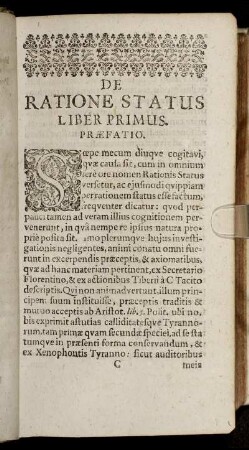 DE
RATIONE STATUS
LIBER PRIMUS.
PRÆFATIO.
Sæpe mecum diuqve cogitavi,
qvæ causa sit, cum in omnium
fere ore nomen Rationis Status
versetur, ac ejusmodi qvippiam
per rationem status esse factum,
freqventer dicatur: qvod per-
pauci tamen ad veram illius cognitionem per-
venerunt, in qvâ nempe re ipsius natura pro-
prie posita sit. imo plerumqve hujus investi-
gationis negligentes, animi conatu omni fue-
runt in excerpendis præceptis, & axiomatibus,
qvæ ad hanc materiam pertinent, ex Secretario
Florentino, & ex actionibus Tiberii à C Tacito
descriptis. Qvi non animadvertunt, illum prin-
cipem suum instituisse, præceptis traditis &
mutuo acceptis ab Aristot. lib. 5. Polit. ubi no-
bis exprimit astutias calliditatesqve Tyranno-
rum, tam primæ qvam secundæ speciei, ad se sta-
tumqve in præsenti forma conservandum, &
ex Xenophontis Tyranno: sicut auditoribus
C meis